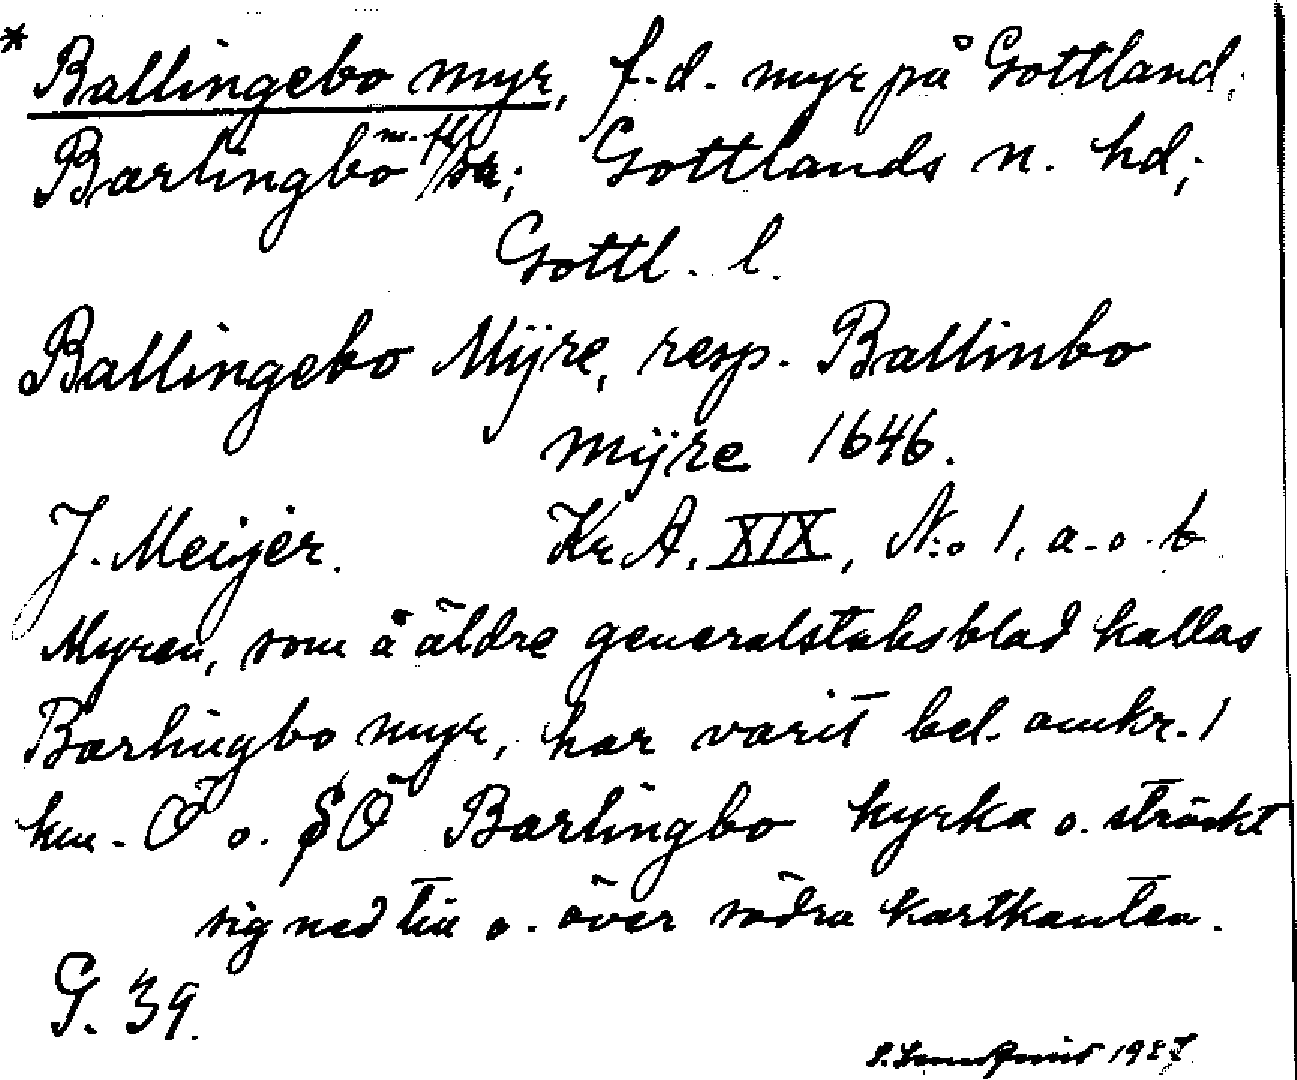 * Ballingebo myr, f.d. myr på Gottland.
Barlingbo m. fl. sn; Gottlands n. hd;
Gottl. l.
Ballingebo Mÿre, resp. Ballinbo
mÿre 1646.
J. Meijer. Kr A. XIX, N:o 1, a. o. b
Myren, som å äldre generalstabsblad kallas
Barlingbo myr, har varit bel. omkr. 1
km. Ö o. SÖ Barlingbo kyrka o. sträckt
sig ned till o. över södra kartkanten.
G. 39.
1927